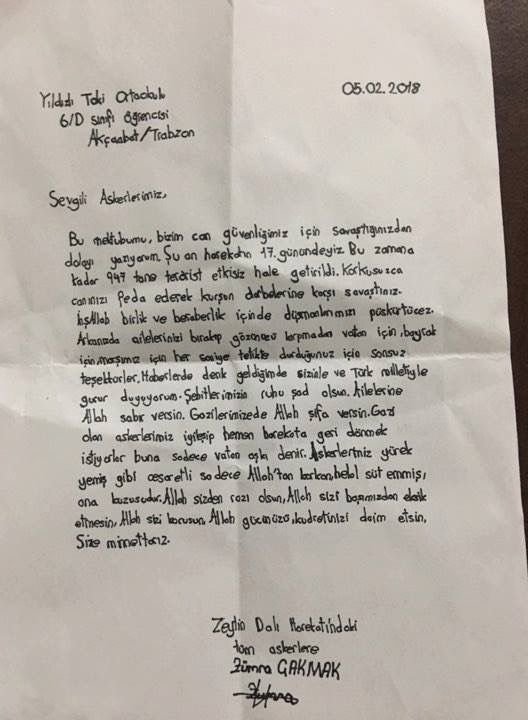 Yıldızlı Toki Ortaokulu
6/D sınıfı öğrencisi
Akçaabat/Trabzon
05.02.2018
Sevgili Askerlerimiz,
Bu mektubumu, bizim can güvenliğimiz için savaştığınızdan
dolayı yazıyorum. Şu an harekatın 17. günündeyiz. Bu zamana
kadar 947 tane terörist etkisiz hale getirildi. Korkusuzca
canınızı feda ederek kurşun darbelerine karşı savaştınız.
İnşAllah birlik ve beraberlik içinde düşmanlarımızı püskürtücez.
Arkanızda ailelerinizi bırakıp gözünüzü kırpmadan vatan için, bayrak
için, marşımız için her saniye tetikte durduğunuz için sonsuz
teşekkürler. Haberlerde denk geldiğimde sizinle ve Türk milletiyle
gurur duyuyorum. Şehitlerimizin ruhu şad olsun. Ailelerine
Allah sabır versin. Gazilerimizede Allah şifa versin. Gazi
olan askerlerimiz iyileşip hemen harekata geri dönmek
istiyorlar buna sadece vatan aşkı denir. Askerlerimiz yürek
yemiş gibi cesaretli sadece Allah'tan korkan, helal süt emmiş,
ana kuzusudur. Allah sizden razı olsun, Allah sizi başımızdan eksik
etmesin, Allah sizi korusun, Allah gücünüzü, kudretinizi daim etsin.
Size minnettarız.
Zeytin Dalı Harekatindaki
tüm askerlere
Zümra ÇAKMAK